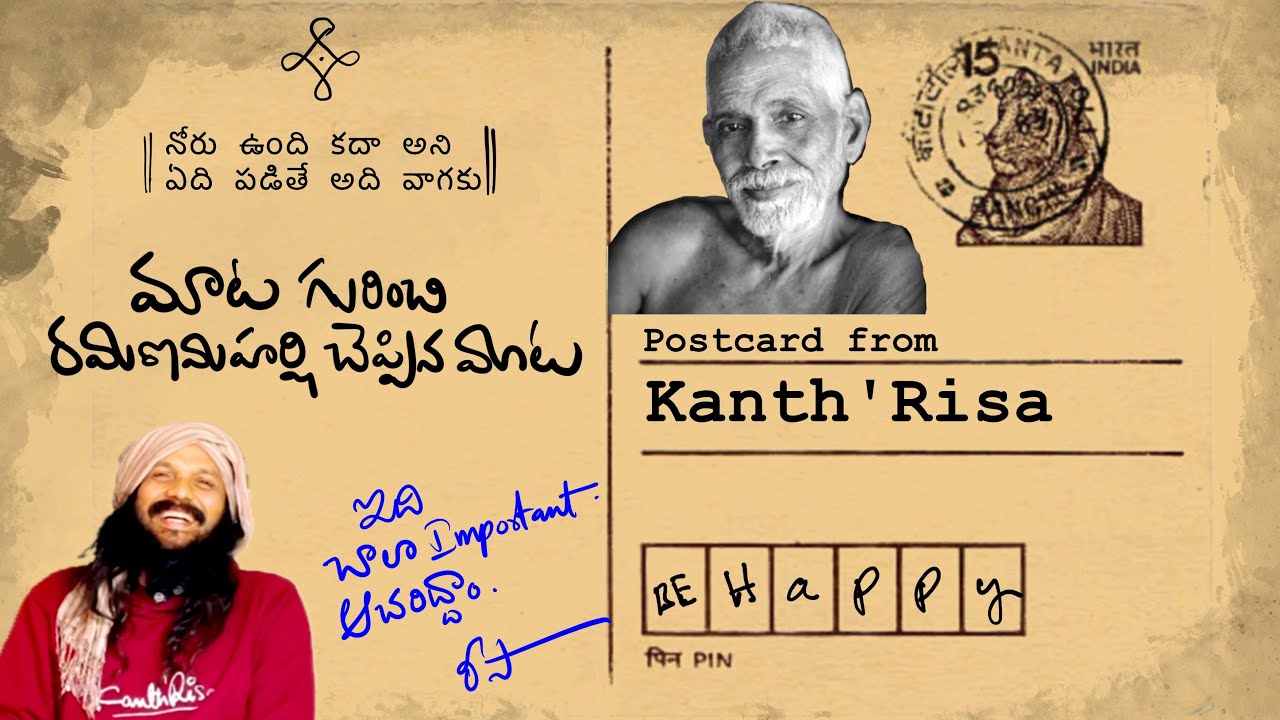 నోరు ఉంది కదా అని
ఏది పడితే అది వాగకు
మాట గురించి
రమణమహర్షి చెప్పిన మాట
ఇది
చాలా Important.
ఆచరిద్దాం.
రిసా
Kanth'Risa
15
भारत
INDIA
Postcard from
Kanth'Risa
BE H a p p y
पिन PIN